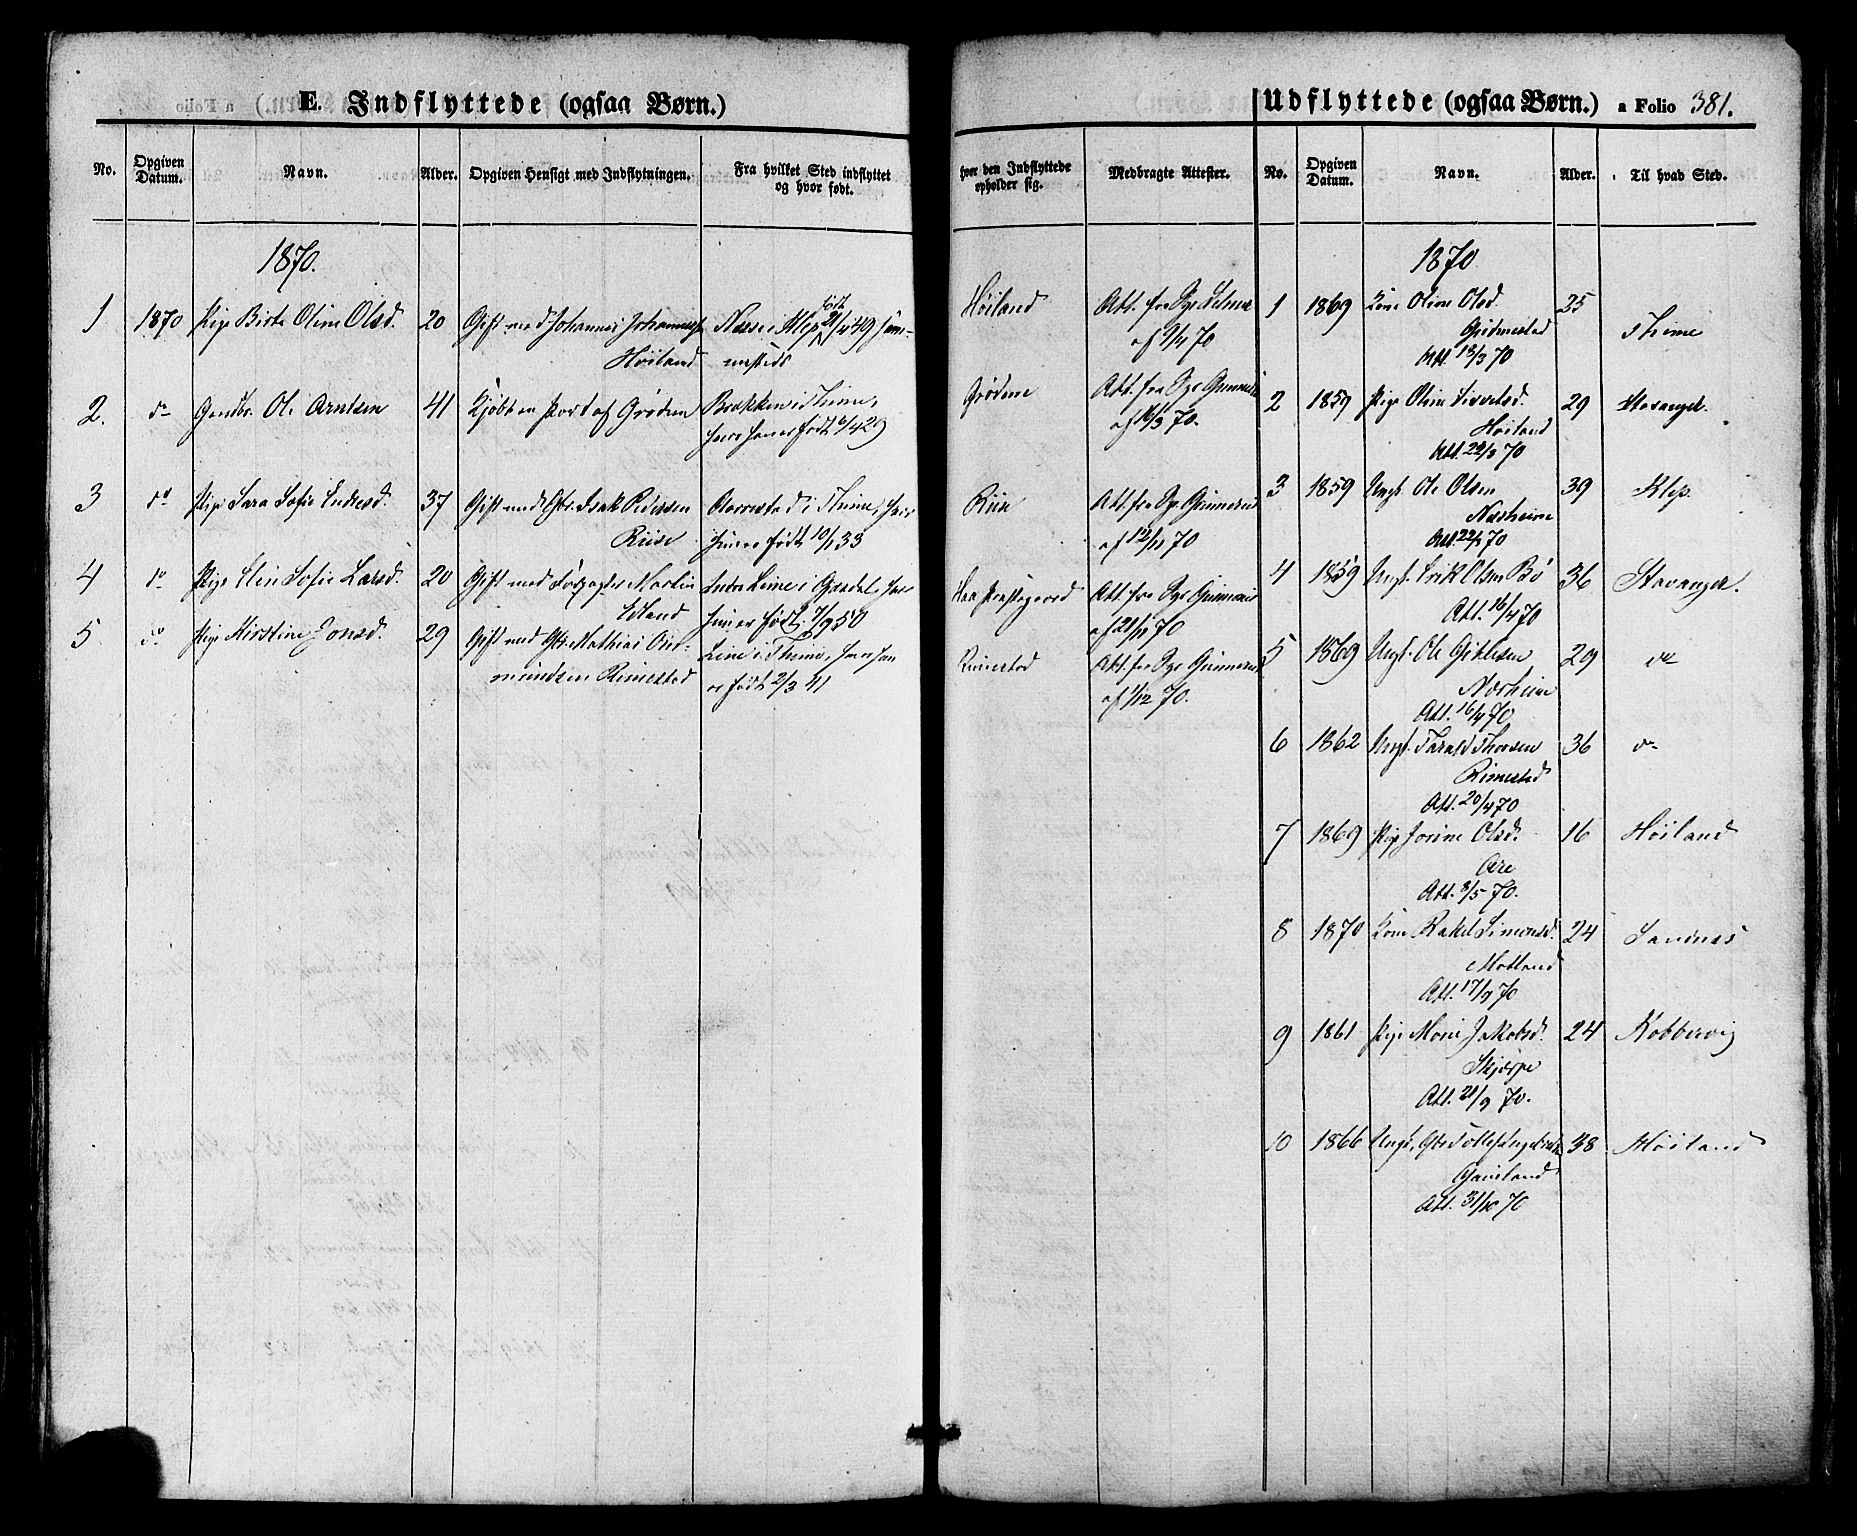 E. Indflyttede (ogsaa Børn.)
No.
Opgiven Datum.
Navn.
Alder.
Opgiven Hensigt med Indflytningen.
Fra hvilket Sted indflyttet og hvor født.
1870.
1 1870 Pige Birte Oline Olsd. 20 Gift med Johannes Johanness. Næse i Klep født 21/4 49 sam-
Høiland mesteds
2. do Gaardbr. Ole Arntsen 41 Kjøbt en Part af Grødem Brekken i Thime,
hvor han er født 6/4 29
3 do Pige Sara Sofie Endresd. 37 Gift med Gbr. Isak Pedersen i Thime, hvor
Riise hun er født 10/1 33
4 do Pige Elin Sofie Larsd. 20 Gift med Martin Indre Lime i Gjesdal, hvor
Edland hun er født 7/9 50
5. do Pige Kirstine Jonsd. 29 Gift med Gbr. Mathias Om- Lime i Thime, hvor hun
mundsen Rimestad er født 2/3 41
Udflyttede (ogsaa Børn.) a Folio 381.
hvor den Indflyttede opholder sig.
Medbragte Attester.
No.
Opgiven Datum.
Navn.
Alder.
Til hvad Sted.
1870
Høiland Att. fra Spr.
af 70
Grødem Att. fra Spr. Gunnerus
af 16/3 70.
Riise Att. fra Spr. Gunnerus
af 12/11 70
Haa Præstegaard Att. fra Spr. Gunnerus
af 21/11 70
Rimestad Att. fra Spr. Gunnerus
af 1/12 70.
1 1869 Kone Oline Olsd. 25 Thime
Grimestad
Att. 13/3 70
2 1859 Pige Oline Sivertsd. 29 Stavanger.
Høiland
Att. 22/3 70
3 1859 Ungk. Ole Olsen 39 Klep.
Nærheim
Att. 22/3 70
4 1859 Ungk. Erik Olsen Bø 36 Stavanger.
Att. 16/4 70
5 1869 Ungk. Ole Gitlesen 29 do
Nærheim
Att. 16/4 70
6 1862 Ungk. Tarald Thorsen 36 do
Rimestad
Att. 20/4 70
7 1869 Pige Josine Olsd. 16 Høiland
Are
Att. 3/5 70.
8 1870 Kone Rakel Simonsd. 24 Sandnes
Motland
Att. 17/9 70
9 1861 Pige Marie Jakobsd. 24 Kobbervig
Skjærpe
Att. 21/9 70.
10 1866 Ungk. 38 Høiland
Gausland
Att. 31/10 70